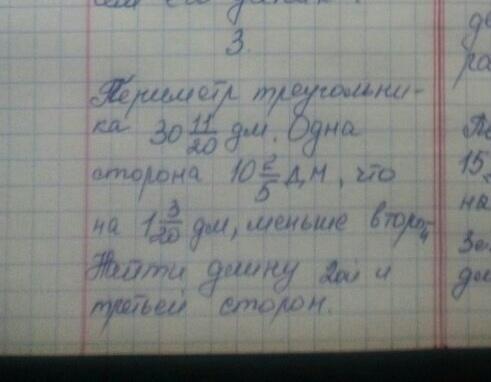 3.
Периметр треугольни-
ка 30 11/20 дм. Одна
сторона 10 2/5 дм, что
на 1 3/20 дм, меньше второй
Найти длину 2ой и
третьей сторон.
15
на